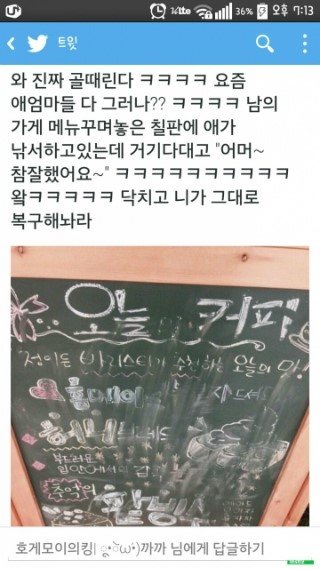 36% 오후 7:13
트윗
와 진짜 골때린다 ㅋㅋㅋㅋ 요즘
애엄마들 다 그러나?? ㅋㅋㅋㅋ 남의
가게 메뉴꾸며놓은 칠판에 애가
낚서하고있는데 거기다대고 "어머~
참잘했어요~" ㅋㅋㅋㅋㅋㅋㅋㅋㅋㅋ
왘ㅋㅋㅋㅋㅋ 닥치고 니가 그대로
복구해놔라
오늘의 커피
정이든 바리스타가 추천하는 오늘의 맛!
부드러운
추억의
팥빙
호게모이의킹
까까 님에게 답글하기